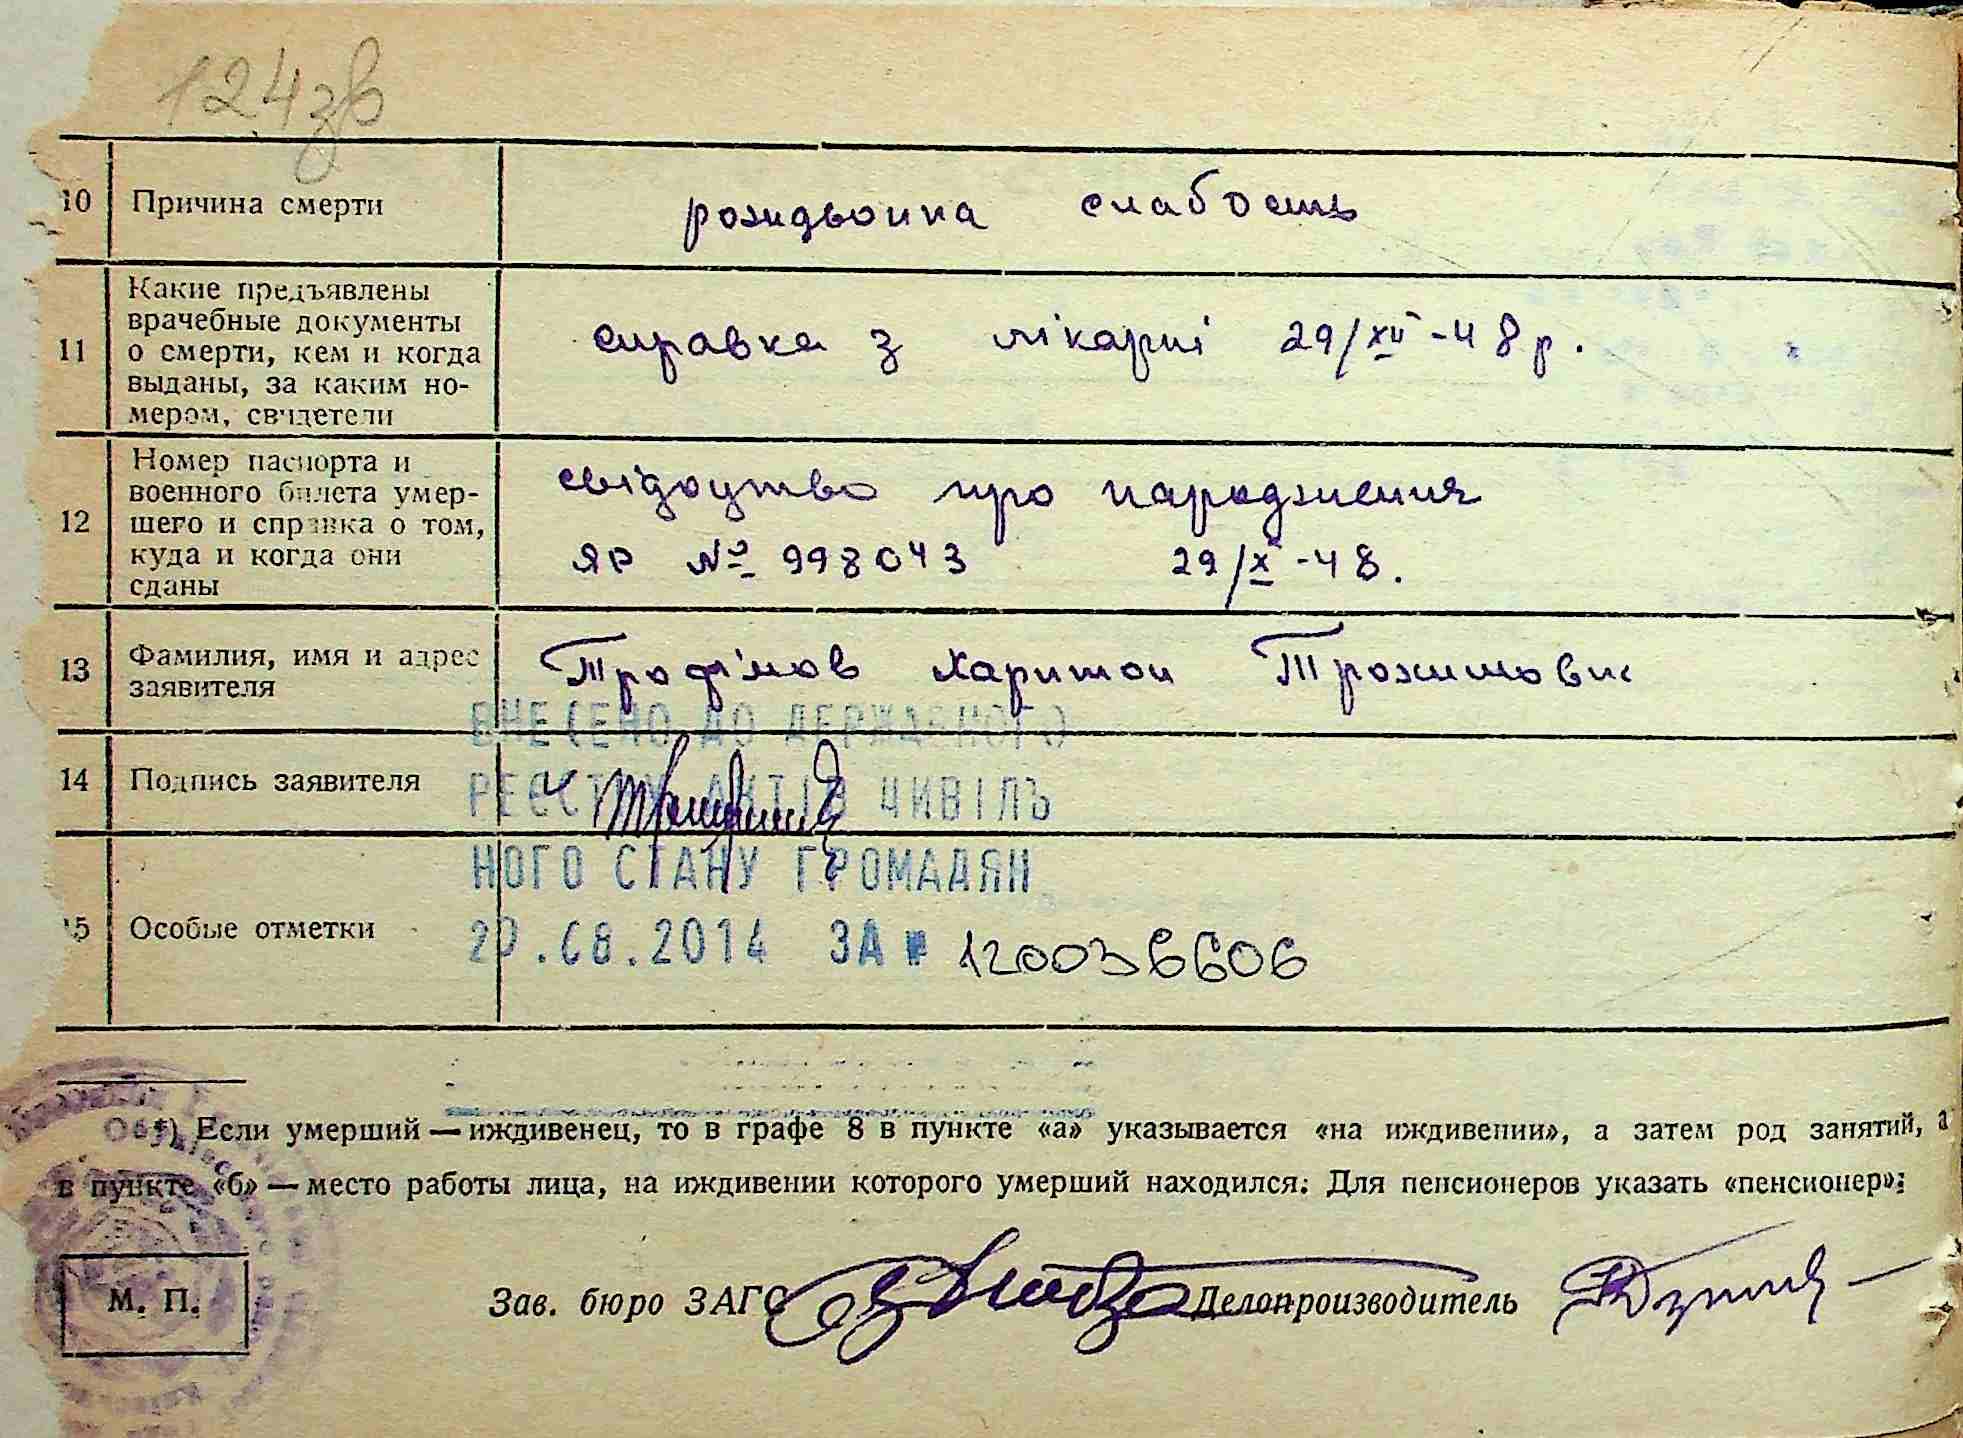 124зв
10 Причина смерти рождьонна слабость
11 Какие предъявлены
врачебные документы
о смерти, кем и когда
выданы, за каким но-
мером, свидетели
справка з лікарні 29/XII-48р.
12 Номер паспорта и
военного билета умер-
шего и справка о том,
куда и когда они
сданы
свідоцтво про народження
ЯР № 998043 29/X-48.
13 Фамилия, имя и адрес
заявителя
Трофімов Харитон
ВНЕСЕНО ДО ДЕРЖАВНОГО
14 Подпись заявителя
РЕЄСТРУ АКТІВ ЦИВІЛЬ
НОГО СТАНУ ГРОМАДЯН
15 Особые отметки
20.08.2014 ЗА № 120036606
*) Если умерший — иждивенец, то в графе 8 в пункте «а» указывается «на иждивении», а затем род занятий, а
в пункте «б» — место работы лица, на иждивении которого умерший находился; Для пенсионеров указать «пенсионер»;
М. П.
Зав. бюро ЗАГС Делопроизводитель